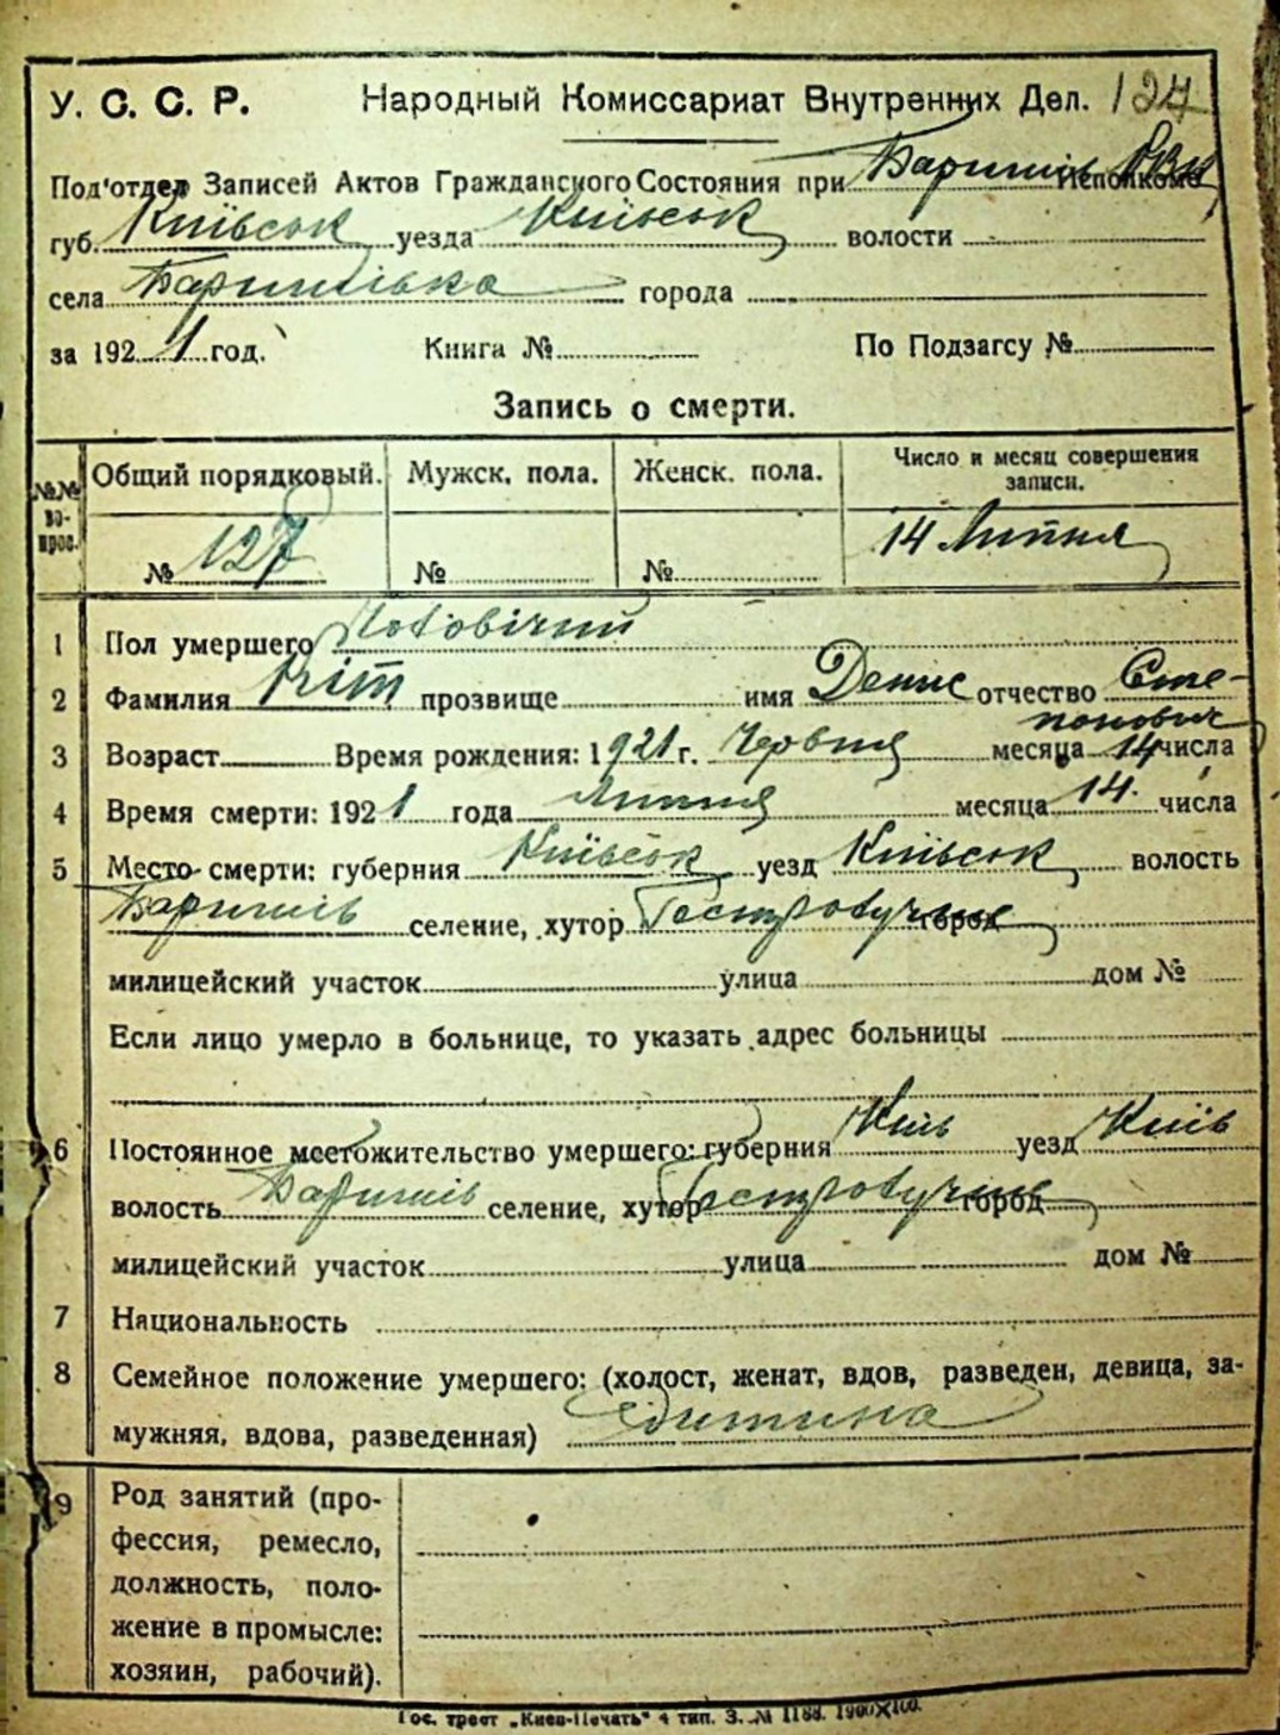 У. С. С. Р. Народный Комиссариат Внутренних Дел. 127
Под'отдел Записей Актов Гражданского Состояния при Баришів Исполкоме
губ. Київськ уезда Київськ волости
села Баришівка города
за 1921 год. Книга № По Подзагсу №
Запись о смерти.
№№ вопрос. Общий порядковый. Мужск. пола. Женск. пола. Число и месяц совершения записи.
№ 127 № № 14 Липня
1 Пол умершего Чоловічий
2 Фамилия Кіт прозвище имя Денис отчество Сте-
панович
3 Возраст Время рождения: 1921 г. Червня месяца 14 числа
4 Время смерти: 1921 года Липня месяца 14 числа
5 Место смерти: губерния Київськ уезд Київськ волость
Баришів селение, хутор город
милицейский участок улица дом №
Если лицо умерло в больнице, то указать адрес больницы
6 Постоянное местожительство умершего: губерния Київ уезд Київ
волость Баришів селение, хутор город
милицейский участок улица дом №
7 Национальность
8 Семейное положение умершего: (холост, женат, вдов, разведен, девица, за-
мужняя, вдова, разведенная) дитина
9 Род занятий (про-
фессия, ремесло,
должность, поло-
жение в промысле:
хозяин, рабочий).
Гос. трест „Киев-Печать" 4 тип. З. № 1188. 1900×100.